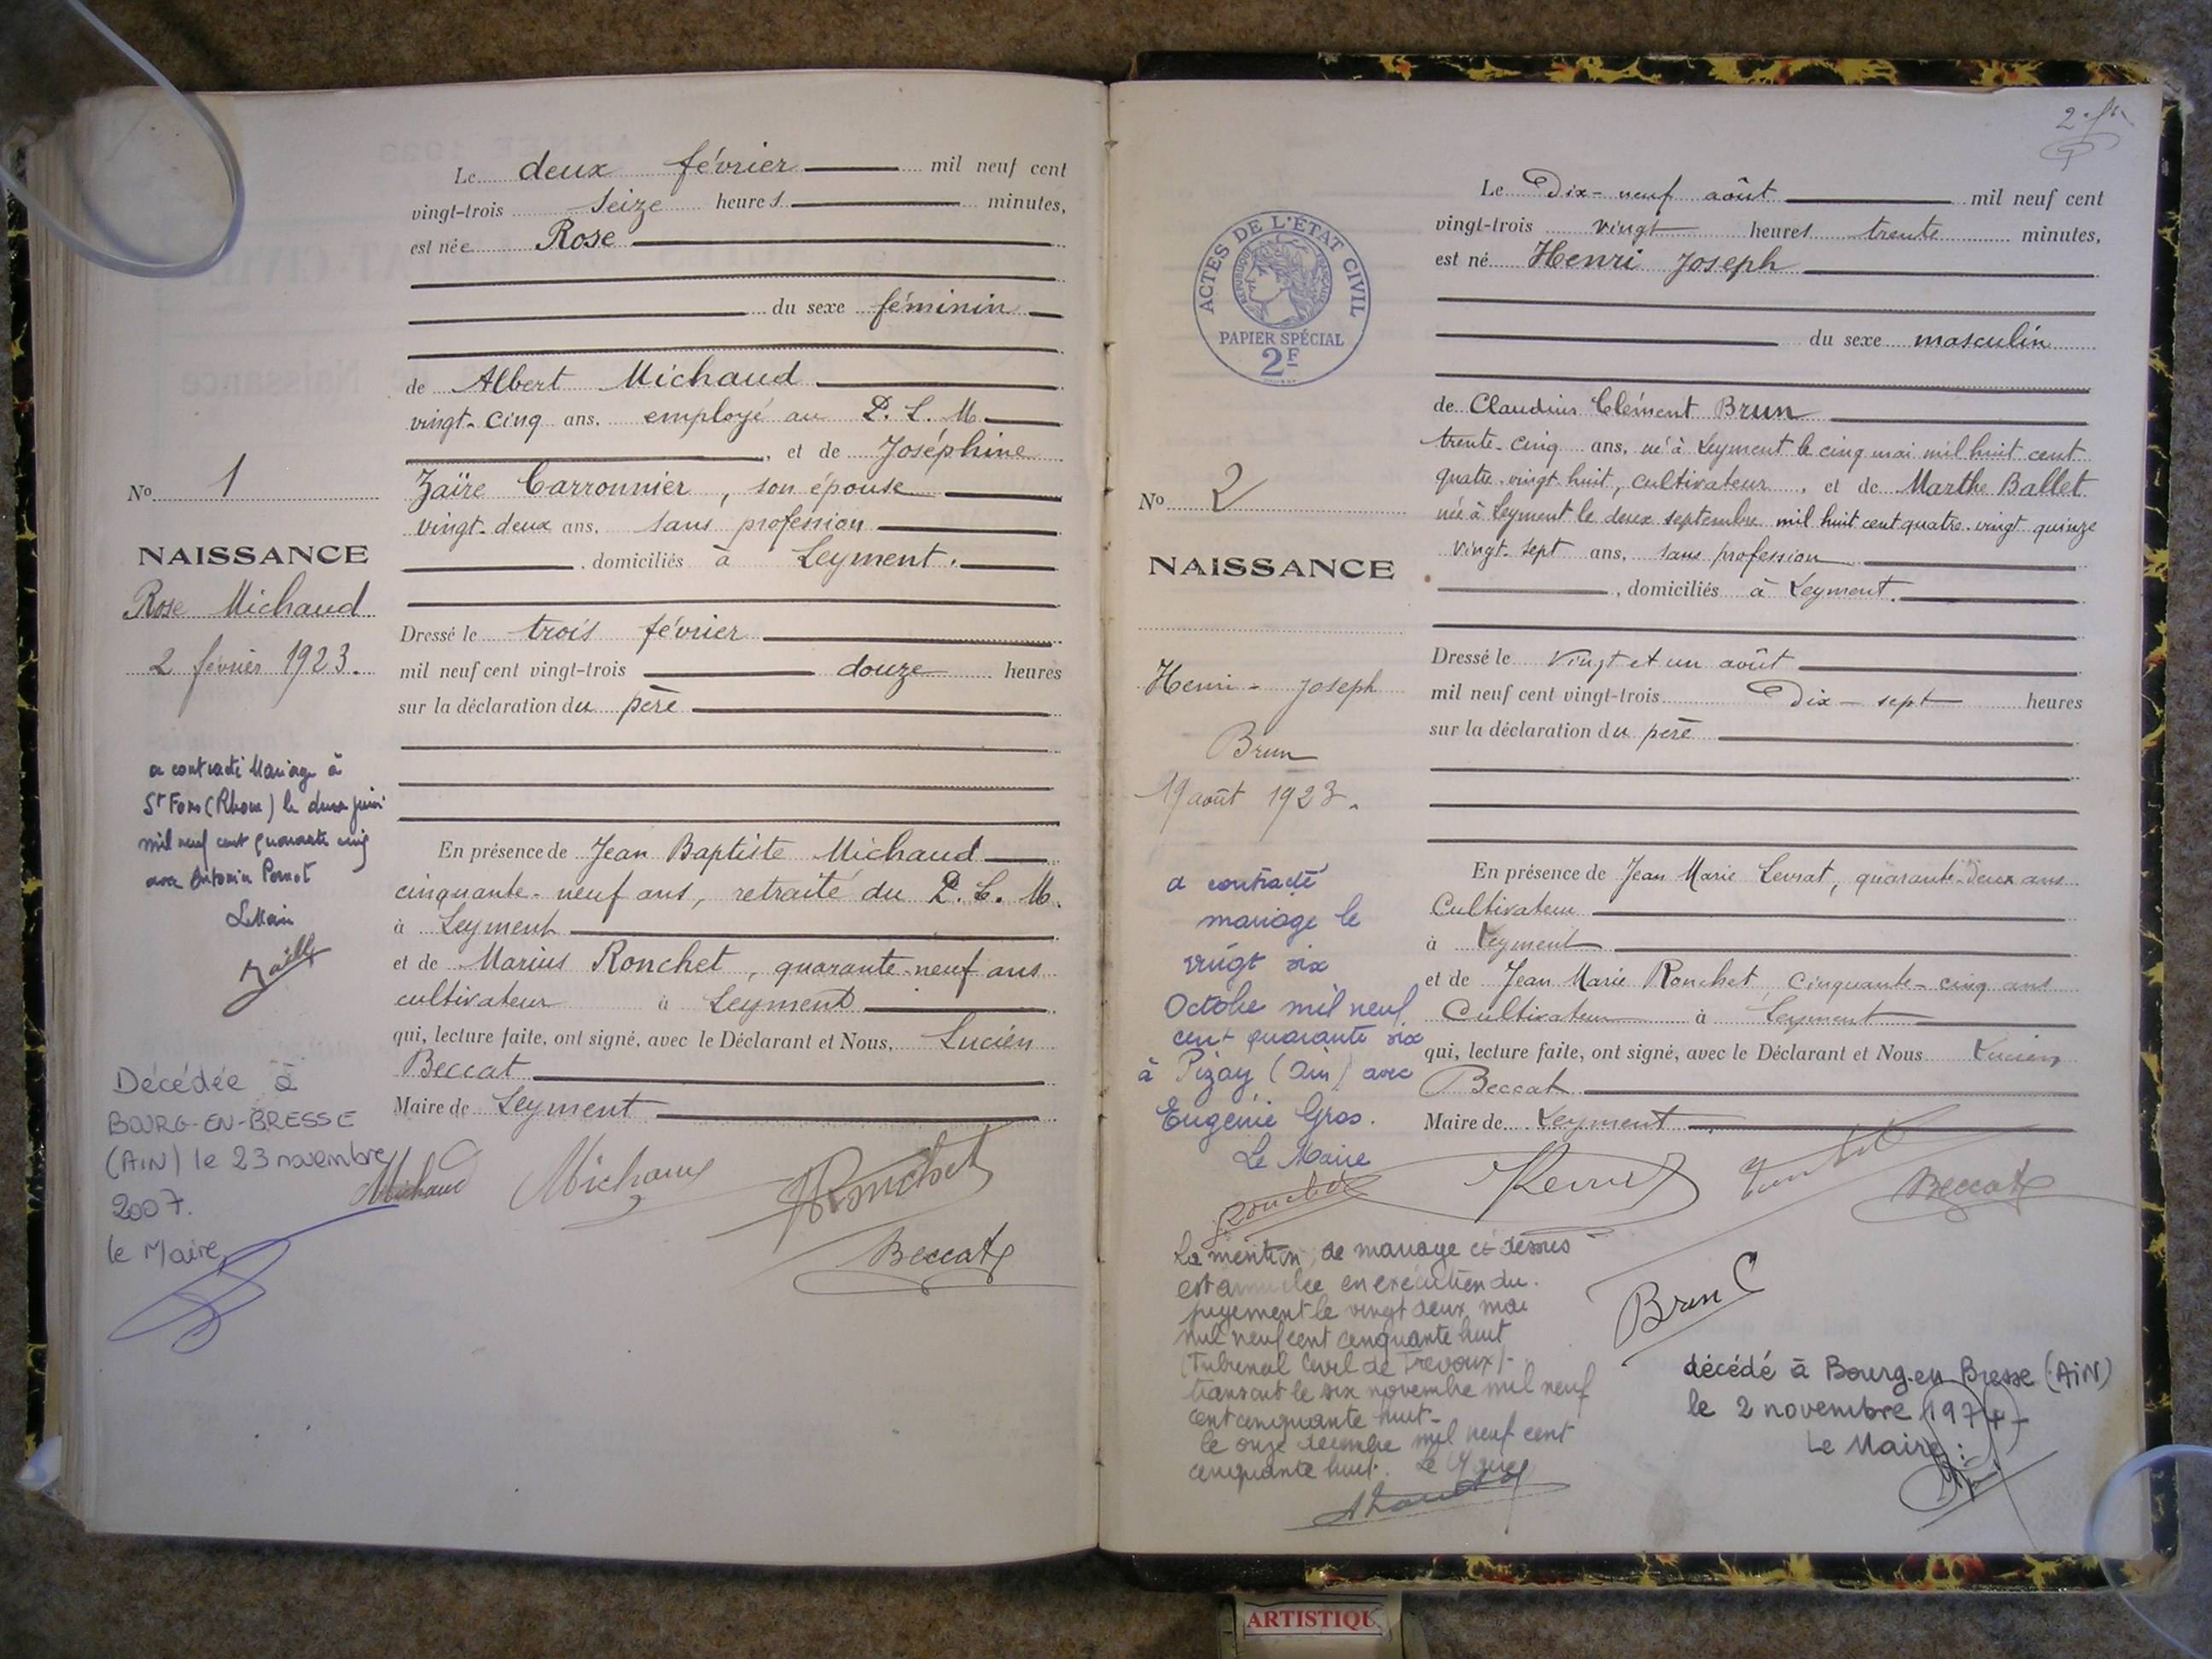 Le deux février mil neuf cent
vingt-trois seize heures minutes,
est née Rose
du sexe féminin
de Albert Michaud
vingt-cinq ans, employé au P. L. M.
et de Joséphine
Zaïre Carronnier, son épouse
vingt-deux ans, sans profession
domiciliés à Leyment.
Dressé le trois février
mil neuf cent vingt-trois douze heures
sur la déclaration du père
En présence de Jean Baptiste Michaud
cinquante-neuf ans, retraité du P. L. M.
à Leyment
et de Marius Ronchet, quarante-neuf ans
cultivateur à Leyment
qui, lecture faite, ont signé, avec le Déclarant et Nous, Lucien
Beccat
Maire de Leyment
Michaud Michaud Ronchet
Beccat
No 1
NAISSANCE
Rose Michaud
2 février 1923.
a contracté Mariage à
St Fons (Rhône) le deux juin
mil neuf cent quarante cinq
avec Antonin
Le Maire
Décédée à
BOURG-EN-BRESSE
(AIN) le 23 novembre
2007.
le Maire,
2
ACTES DE L'ÉTAT CIVIL
RÉPUBLIQUE FRANÇAISE
PAPIER SPÉCIAL
2F
Le Dix-neuf août mil neuf cent
vingt-trois vingt heures trente minutes,
est né Henri Joseph
du sexe masculin
de Claudius Clément Brun
trente-cinq ans, né à Leyment le cinq mai mil huit cent
quatre-vingt huit, cultivateur, et de Marthe Ballet
née à Leyment le deux septembre mil huit cent quatre-vingt quinze
vingt-sept ans, sans profession
, domiciliés à Leyment.
Dressé le vingt et un août
mil neuf cent vingt-trois Dix-sept heures
sur la déclaration du père
En présence de Jean Marie Levrat, quarante-deux ans
Cultivateur
à Leyment
et de Jean Marie Ronchet, Cinquante-cinq ans
Cultivateur à Leyment
qui, lecture faite, ont signé, avec le Déclarant et Nous Lucien
Beccat
Maire de Leyment
Beccat
Brun C
No 2
NAISSANCE
Henri-Joseph
Brun
19 août 1923.
a contracté
mariage le
vingt six
Octobre mil neuf
cent quarante six
à Pizay (Ain) avec
Eugénie Gros.
Le Maire
Ronchet
La mention de mariage ci-dessus
est annulée en exécution du
jugement le vingt deux mai
mil neuf cent cinquante huit
(Tribunal Civil de Trévoux)-
transcrit le six novembre mil neuf
cent cinquante huit-
le onze décembre mil neuf cent
cinquante huit.
décédé à Bourg-en Bresse (AIN)
le 2 novembre 1974
Le Maire :
ARTISTIQU